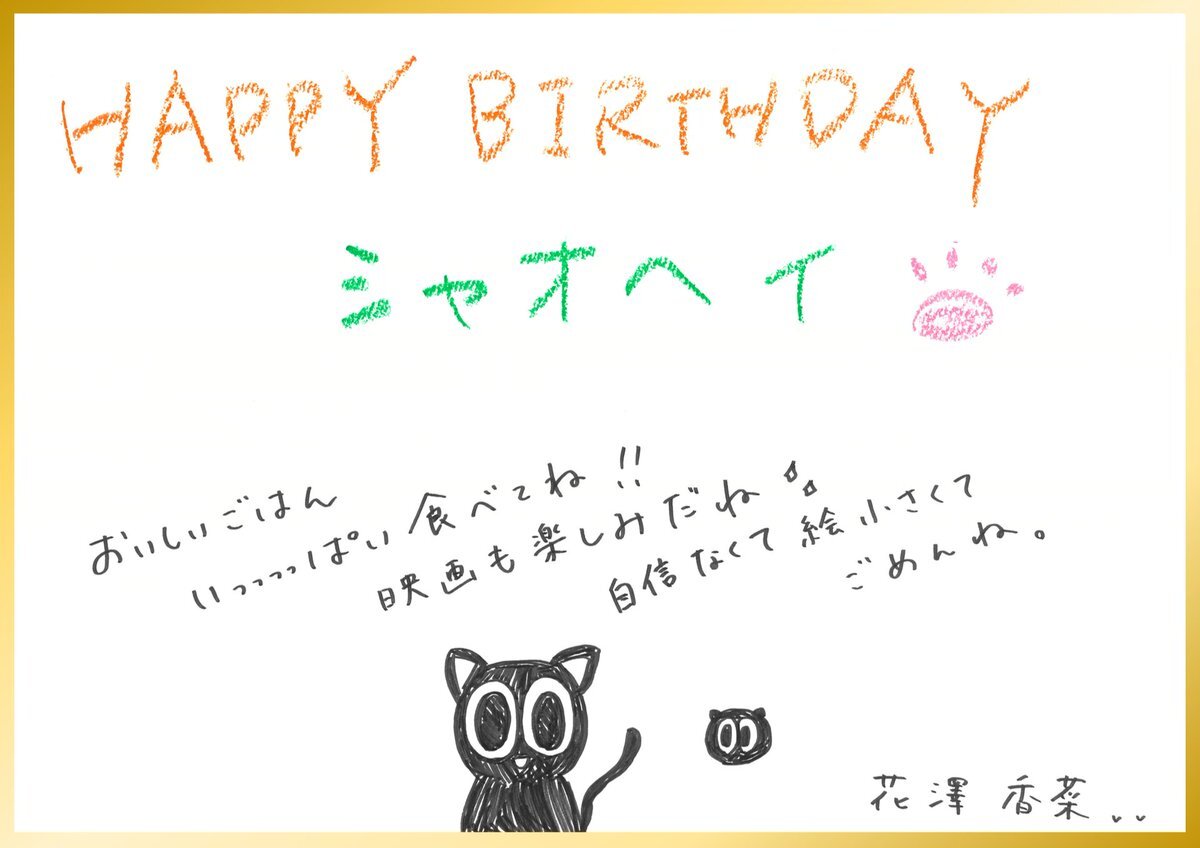 HAPPY BIRTHDAY
シャオヘイ
おいしいごはん
いっっっっぱい食べてね!!
映画も楽しみだね
自信なくて絵小さくて
ごめんね。
花澤香菜